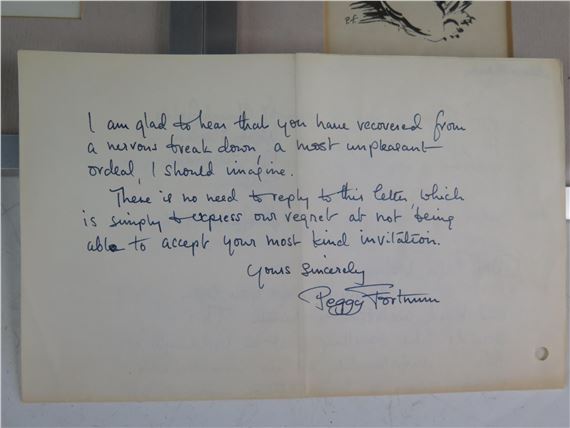 P.F.
I am glad to hear that you have recovered from
a nervous break down, a most unpleasant
ordeal, I should imagine.
There is no need to reply to this letter, which
is simply to express our regret at not being
able to accept your most kind invitation.
Yours sincerely
Peggy Fortnum